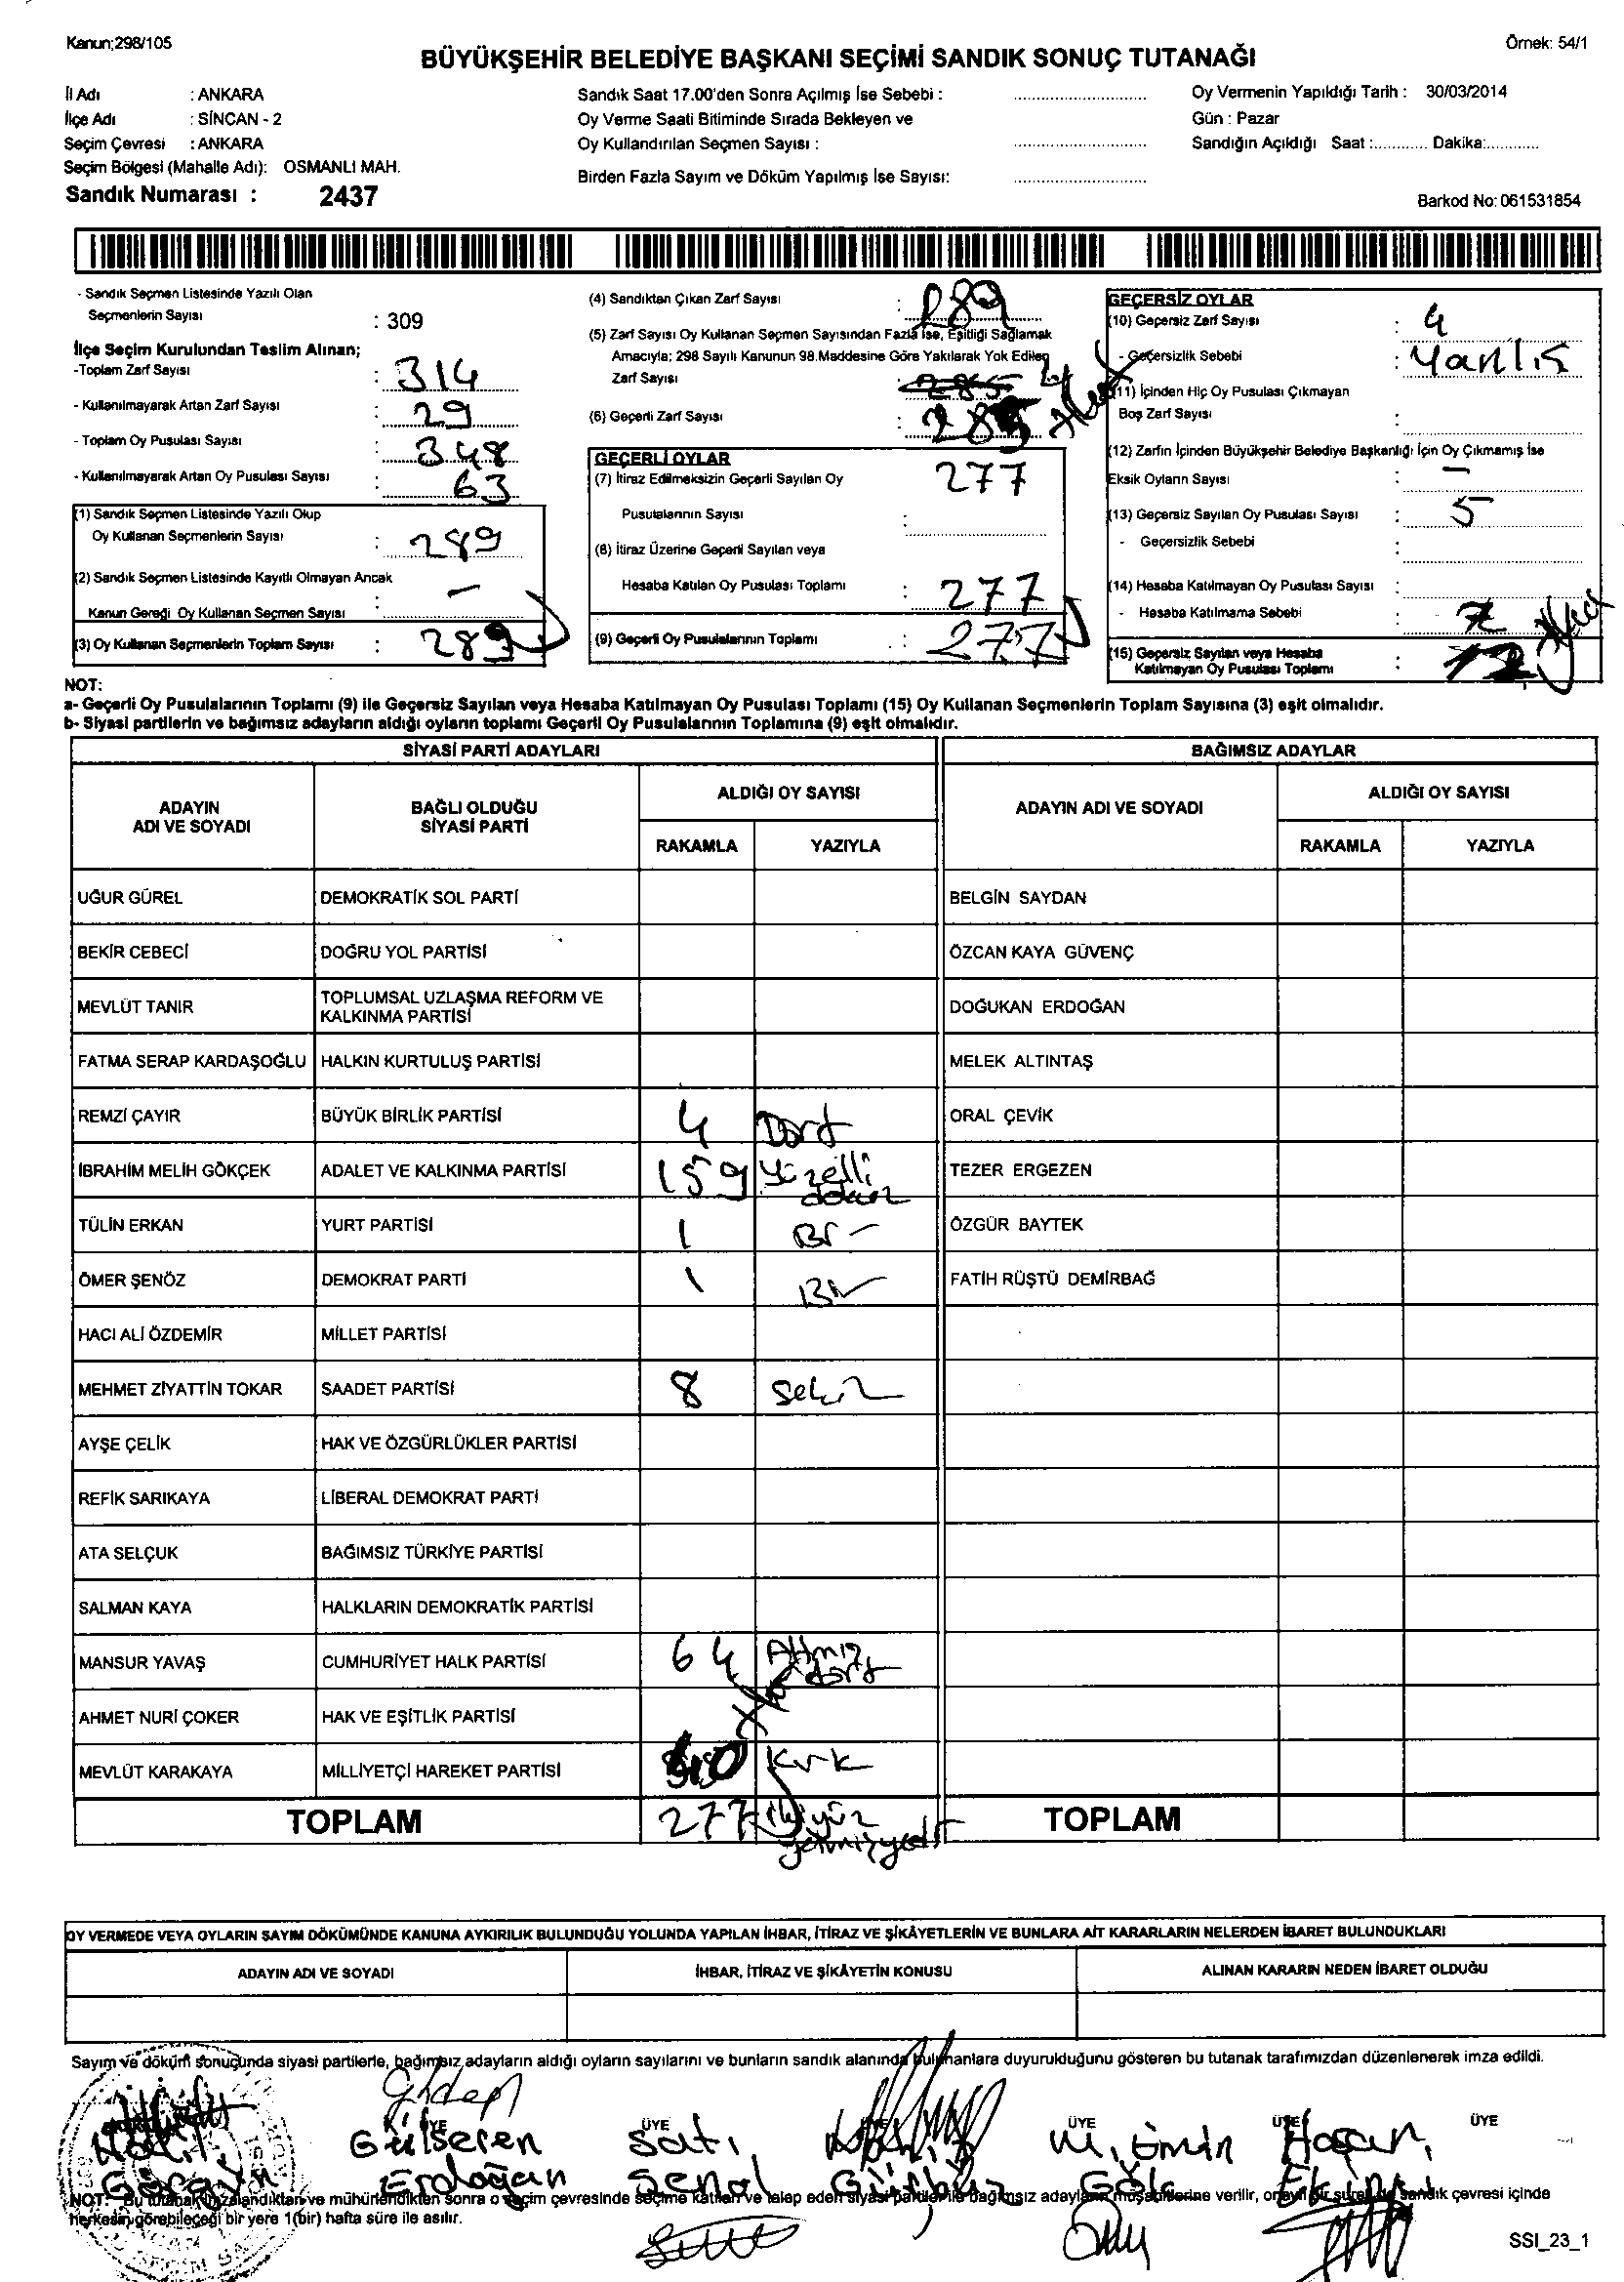 Kanun;298/105
Örnek: 54/1
BÜYÜKŞEHİR BELEDİYE BAŞKANI SEÇİMİ SANDIK SONUÇ TUTANAĞI
İl Adı : ANKARA
İlçe Adı : SİNCAN - 2
Seçim Çevresi : ANKARA
Seçim Bölgesi (Mahalle Adı): OSMANLI MAH.
Sandık Numarası : 2437
Sandık Saat 17.00'den Sonra Açılmış İse Sebebi :
Oy Verme Saati Bitiminde Sırada Bekleyen ve
Oy Kullandırılan Seçmen Sayısı :
Birden Fazla Sayım ve Döküm Yapılmış İse Sayısı:
Oy Vermenin Yapıldığı Tarih : 30/03/2014
Gün : Pazar
Sandığın Açıldığı Saat :............ Dakika:............
Barkod No: 061531854
- Sandık Seçmen Listesinde Yazılı Olan
Seçmenlerin Sayısı : 309
İlçe Seçim Kurulundan Teslim Alınan;
-Toplam Zarf Sayısı : 314
- Kullanılmayarak Artan Zarf Sayısı : 29
- Toplam Oy Pusulası Sayısı : 348
- Kullanılmayarak Artan Oy Pusulası Sayısı : 63
(1) Sandık Seçmen Listesinde Yazılı Olup
Oy Kullanan Seçmenlerin Sayısı : 289
(2) Sandık Seçmen Listesinde Kayıtlı Olmayan Ancak
Kanun Gereği Oy Kullanan Seçmen Sayısı : –
(3) Oy Kullanan Seçmenlerin Toplam Sayısı : 289
(4) Sandıktan Çıkan Zarf Sayısı : 289
(5) Zarf Sayısı Oy Kullanan Seçmen Sayısından Fazla İse, Eşitliği Sağlamak
Amacıyla; 298 Sayılı Kanunun 98.Maddesine Göre Yakılarak Yok Edilen
Zarf Sayısı : 285 4
(6) Geçerli Zarf Sayısı : 285
GEÇERLİ OYLAR
(7) İtiraz Edilmeksizin Geçerli Sayılan Oy 277
Pusulalarının Sayısı :
(8) İtiraz Üzerine Geçerli Sayılan veya
Hesaba Katılan Oy Pusulası Toplamı : 277
(9) Geçerli Oy Pusulalarının Toplamı : 277
GEÇERSİZ OYLAR
(10) Geçersiz Zarf Sayısı : 4
- Geçersizlik Sebebi : Yanlış
(11) İçinden Hiç Oy Pusulası Çıkmayan
Boş Zarf Sayısı :
(12) Zarfın İçinden Büyükşehir Belediye Başkanlığı İçin Oy Çıkmamış İse
Eksik Oyların Sayısı : –
(13) Geçersiz Sayılan Oy Pusulası Sayısı : 5
- Geçersizlik Sebebi :
(14) Hesaba Katılmayan Oy Pusulası Sayısı :
- Hesaba Katılmama Sebebi : 7
(15) Geçersiz Sayılan veya Hesaba
Katılmayan Oy Pusulası Toplamı : 12
NOT:
a- Geçerli Oy Pusulalarının Toplamı (9) ile Geçersiz Sayılan veya Hesaba Katılmayan Oy Pusulası Toplamı (15) Oy Kullanan Seçmenlerin Toplam Sayısına (3) eşit olmalıdır.
b- Siyasi partilerin ve bağımsız adayların aldığı oyların toplamı Geçerli Oy Pusulalarının Toplamına (9) eşit olmalıdır.
SİYASİ PARTİ ADAYLARI BAĞIMSIZ ADAYLAR
ADAYIN ADI VE SOYADI BAĞLI OLDUĞU SİYASİ PARTİ ALDIĞI OY SAYISI ADAYIN ADI VE SOYADI ALDIĞI OY SAYISI
RAKAMLA YAZIYLA RAKAMLA YAZIYLA
UĞUR GÜREL DEMOKRATİK SOL PARTİ BELGİN SAYDAN
BEKİR CEBECİ DOĞRU YOL PARTİSİ ÖZCAN KAYA GÜVENÇ
MEVLÜT TANIR TOPLUMSAL UZLAŞMA REFORM VE KALKINMA PARTİSİ DOĞUKAN ERDOĞAN
FATMA SERAP KARDAŞOĞLU HALKIN KURTULUŞ PARTİSİ MELEK ALTINTAŞ
REMZİ ÇAYIR BÜYÜK BİRLİK PARTİSİ 4 Dört ORAL ÇEVİK
İBRAHİM MELİH GÖKÇEK ADALET VE KALKINMA PARTİSİ 159 Yüzelli dokuz TEZER ERGEZEN
TÜLİN ERKAN YURT PARTİSİ 1 Bir ÖZGÜR BAYTEK
ÖMER ŞENÖZ DEMOKRAT PARTİ 1 Bir FATİH RÜŞTÜ DEMİRBAĞ
HACI ALİ ÖZDEMİR MİLLET PARTİSİ
MEHMET ZİYATTİN TOKAR SAADET PARTİSİ 8 Sekiz
AYŞE ÇELİK HAK VE ÖZGÜRLÜKLER PARTİSİ
REFİK SARIKAYA LİBERAL DEMOKRAT PARTİ
ATA SELÇUK BAĞIMSIZ TÜRKİYE PARTİSİ
SALMAN KAYA HALKLARIN DEMOKRATİK PARTİSİ
MANSUR YAVAŞ CUMHURİYET HALK PARTİSİ 64 Altmış dört
AHMET NURİ ÇOKER HAK VE EŞİTLİK PARTİSİ
MEVLÜT KARAKAYA MİLLİYETÇİ HAREKET PARTİSİ 40 Kırk
TOPLAM 277 ikiyüz yetmişyedi TOPLAM
OY VERMEDE VEYA OYLARIN SAYIM DÖKÜMÜNDE KANUNA AYKIRILIK BULUNDUĞU YOLUNDA YAPILAN İHBAR, İTİRAZ VE ŞİKÂYETLERİN VE BUNLARA AİT KARARLARIN NELERDEN İBARET BULUNDUKLARI
ADAYIN ADI VE SOYADI İHBAR, İTİRAZ VE ŞİKÂYETİN KONUSU ALINAN KARARIN NEDEN İBARET OLDUĞU
Sayım ve döküm sonucunda siyasi partilerle, bağımsız adayların aldığı oyların sayılarını ve bunların sandık alanında bulunanlara duyurulduğunu gösteren bu tutanak tarafımızdan düzenlenerek imza edildi.
ÜYE ÜYE ÜYE ÜYE ÜYE
Gülseren Satı M. Emin Hasan
Erdoğan Şenol
NOT: Bu tutanak imzalandıktan ve mühürlendikten sonra o seçim çevresinde seçime katılan ve talep eden siyasi partiler ile bağımsız adayların müşahitlerine verilir, onaylı bir sureti de sandık çevresi içinde
herkesin görebileceği bir yere 1(bir) hafta süre ile asılır.
SSI_23_1